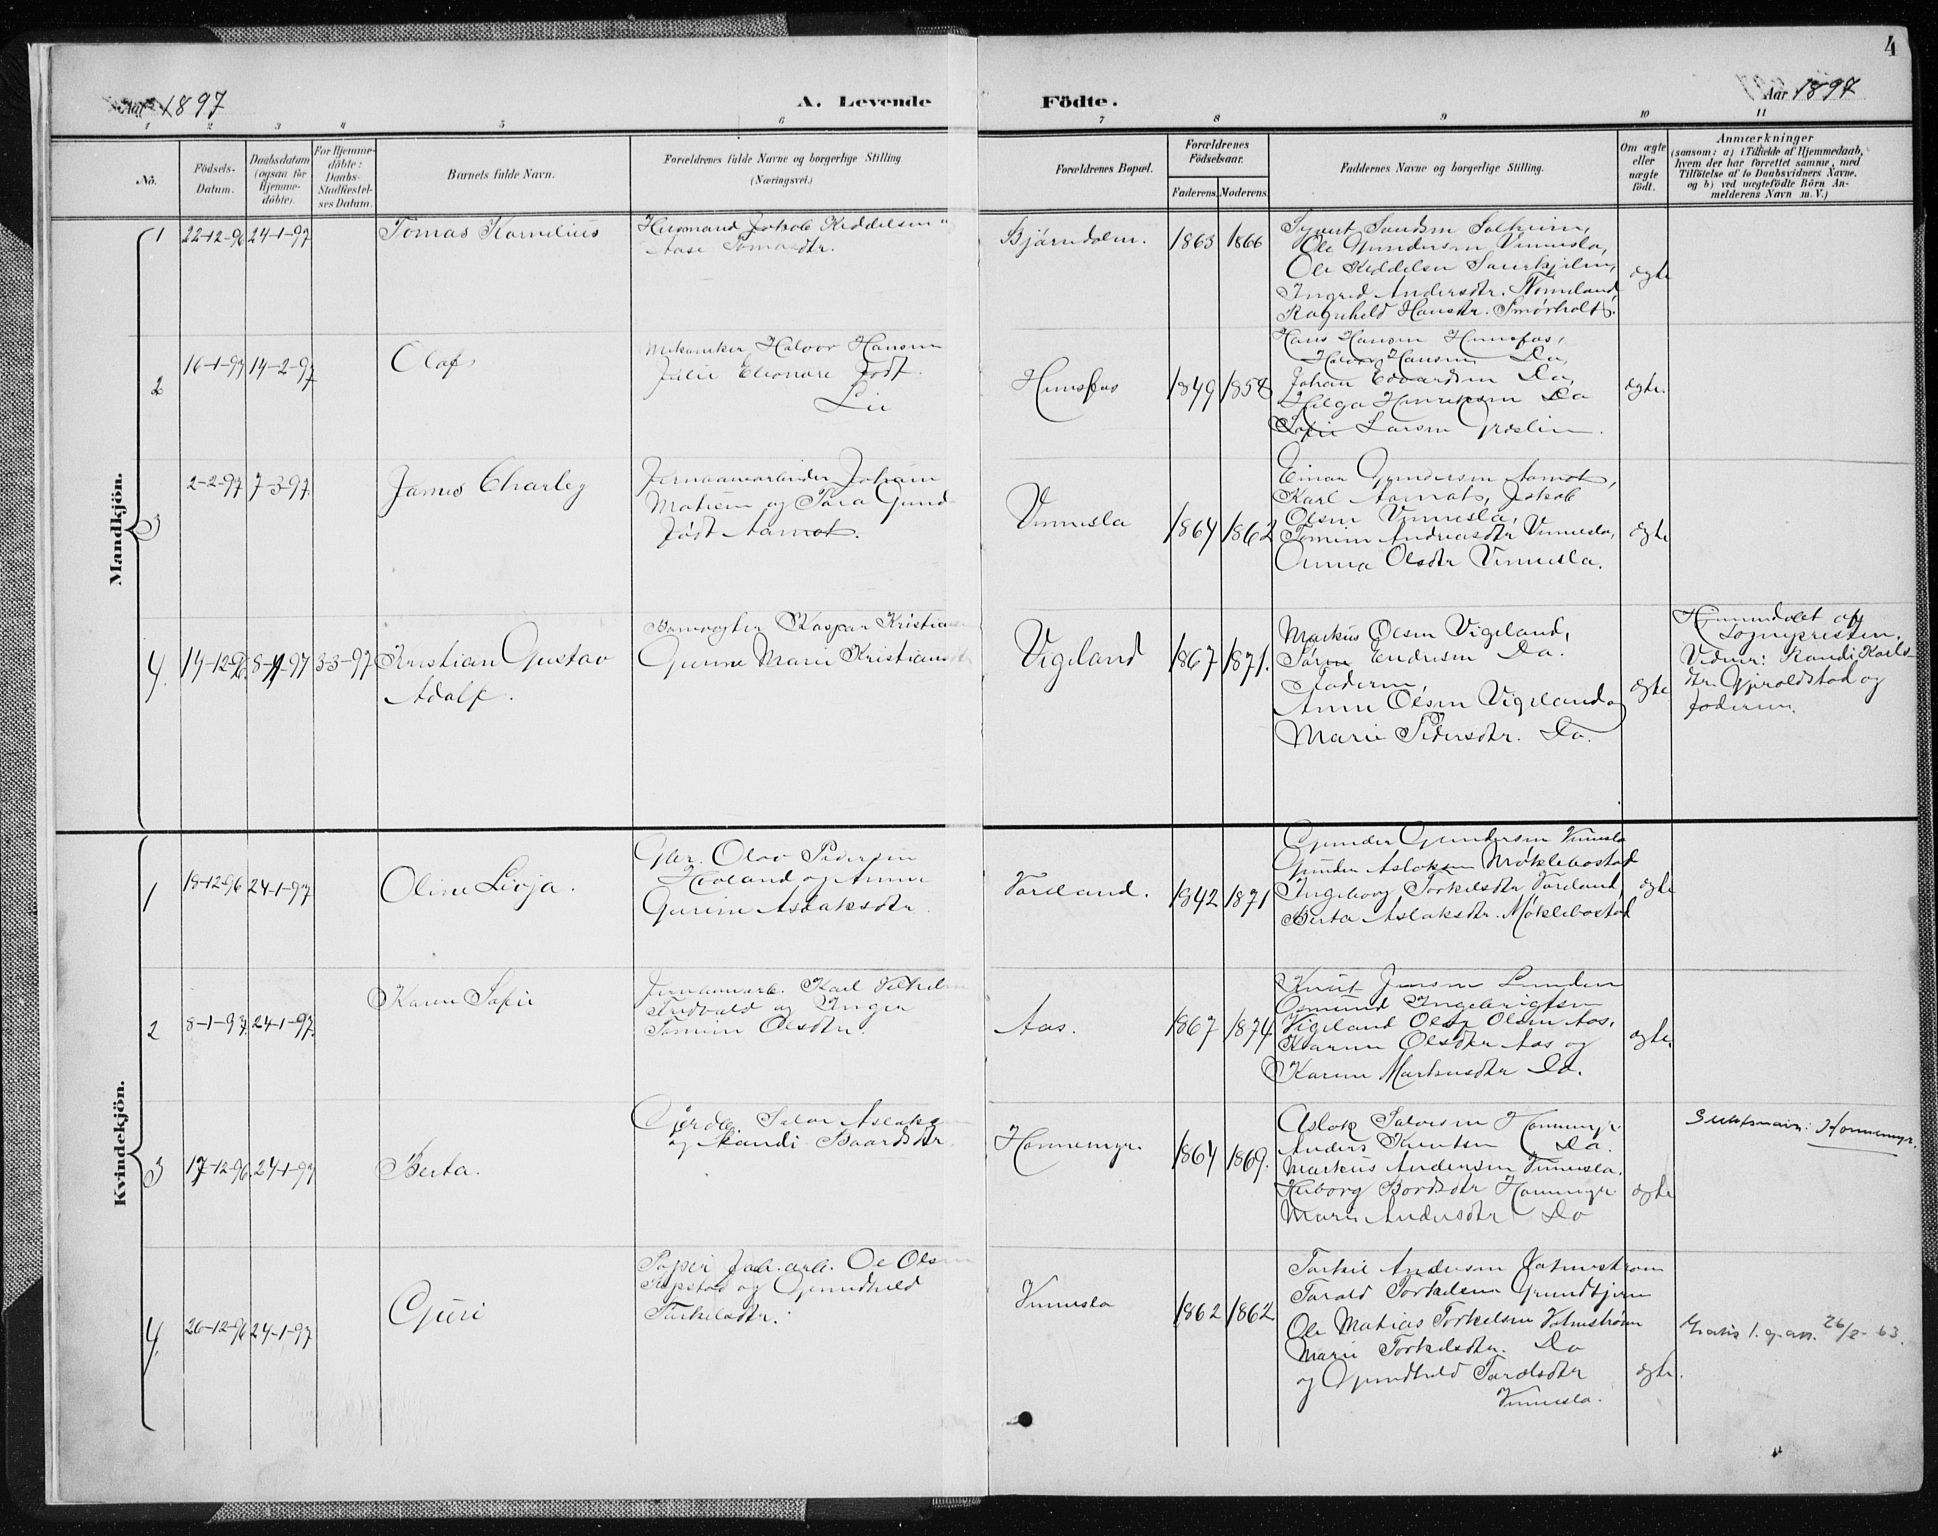 4
Aar 1897
A. Levende
Födte.
Aar 1897
1 2 3 4 5 6 7 8 9 10 11
No.
Födsels-
Datum.
Daabsdatum
(ogsaa for
Hjemme-
döbte).
For Hjemme-
döbte:
Daabs-
Stadfæstel-
ses Datum.
Barnets fulde Navn.
Forældrenes fulde Navne og borgerlige Stilling
(Næringsvei.)
Forældrenes Bopæl.
Forældrenes
Födselsaar.
Faderens. Moderens.
Faddernes Navne og borgerlige Stilling.
Om ægte
eller
uægte
födt.
Anmærkninger
(saasom: a) i Tilfælde af Hjemmedaab,
hvem der har forrettet samme, med
Tilföielse af to Daabsvidners Navne.
og b) ved uægtefödte Börn An-
melderens Navn m. V.)
Mandkjön.
1
22-12-96 24-1-97
Tomas Kornelius
Jakob Keddelsen og
Aase Tomasdtr.
Bjørndalen.
1863 1866
Solheim,
Ole Gundersen Vennesla,
Ole Keddelsen
Ingred Andersdtr.
Ragnhild Hansdtr. Smørholdt.
ægte
2
16-1-97 14-2-97
Olaf
Mekaniker Halvor Hansen
Julie Eleonore født
Lie
Hunsfos
1849 1858
Hans Hansen Hunsfos,
Hansen Do,
Johan Edvardsen Do,
Helga Henriksen Do
Sofie Larsen
ægte.
3
2-2-97 7-3-97.
James Charley
Johan
Matisen og Sara Gund
født Aamot.
Vennesla
1864 1862
Einar Gundersen Aamot,
Karl Aamot, Jakob
Olsen Vennesla,
Tomine Andreasdtr Vennesla,
Anna Olsdtr Vennesla.
ægte
4.
14-12-96. 8-1-97 3-3-97
Kristian Gustav
Adolf.
Bomvogter Kaspar Kristian
Gunne Marie Kristiansdtr
Vigeland
1867 1871.
Markus Olsen Vigeland,
Søren Endresen Do.
Faderen,
Anne Olsen Vigeland og
Marie Pedersdtr. Do.
ægte
Hjemmedøbt af
Sognepresten.
Vidner: Randi Karls-
dtr. og
Faderen.
Kvindekjön.
1
18-12-96 24-1-97
Oline Livja.
Gbr. Olav Pedersen
Hovland og Anne
Gurine Aslaksdtr.
Voreland.
1842 1871
Gunder Gundersen Vennesla
Gunder Aslaksen Møklebostad
Ingeborg Torkelsdtr Voreland,
Berta Aslaksdtr. Møklebostad
ægte
2
8-1-97. 24-1-97.
Karen Sofie
Karl
og Inger
Tomine Olsdtr.
Aas.
1867 1874
Knut Jensen Lunden
Osmund Ingebrigtsen
Vigeland Ole Olsen Aas,
Karen Olsdtr Aas og
Karen Markusdtr Do.
ægte.
3
17-12-96. 24-1-97
Berta.
Salve Aslaks
og Randi Baardsdtr.
Honnemyr.
1864 1869.
Aslak Salvesen Honnemyr
Anders Knutsen Do.
Markus Andersen Vennesla.
Herborg Bordsdtr Honnemyr
Maren Andersdtr Do
ægte
Slektsnavn: Honnemyr.
4.
26-12-96 24-1-97
Guri
Papir fab. arb. Ole Olsen
og Gundhild
Tarkelsdtr.
Vennesla
1862 1862
Torkil Andersen Vatnestrøm
Tarald Torkelsen
Ole Matias Torkelsen Vatnestrøm
Marie Torkelsdtr. Do
og Gundhild Taraldsdtr
Vennesla.
ægte.
Gratis 1. gang 26/2-63.